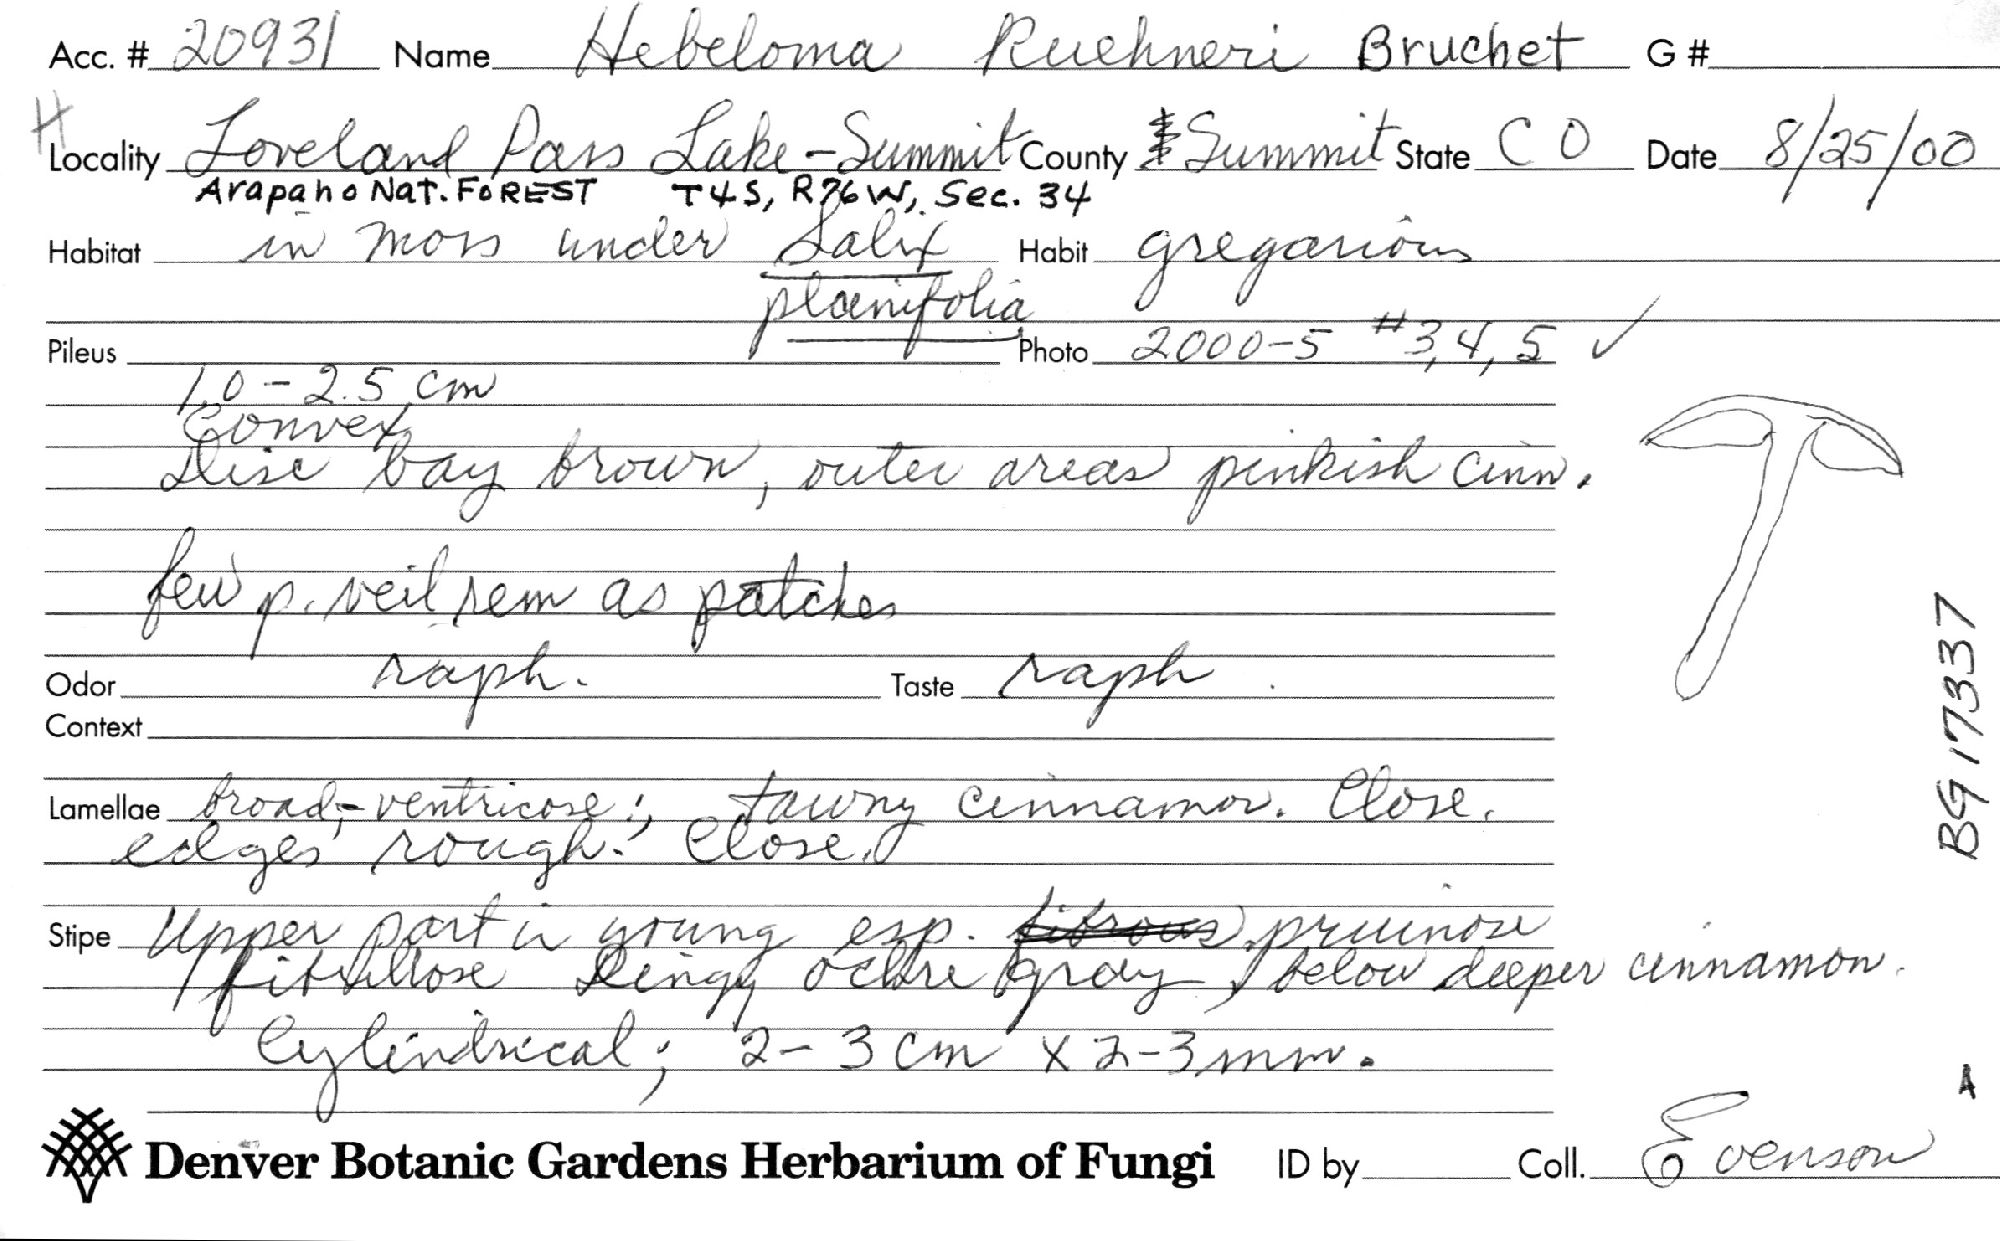 Acc. # 20931 Name Hebeloma Kuehneri Bruchet G #
H
Locality Loveland Pass Lake-Summit County Summit State CO Date 8/25/00
Arapaho Nat. FOREST T4S, R76W, Sec. 34
Habitat in moss under Salix Habit gregarious
planifolia
Pileus Photo 2000-5 #3,4,5 ✓
1.0-2.5 cm
Convex
Disc bay brown, outer areas pinkish cinn.
few p. veil rem as patches
Odor raph. Taste raph.
Context
Lamellae broad,-ventricose; tawny cinnamon. Close.
edges rough. Close.
Stipe Upper part in young esp. fibrous pruinose
fibrillose dingy ochre gray, below deeper cinnamon.
Cylindrical; 2-3 cm x 2-3 mm.
BG17337
A
Denver Botanic Gardens Herbarium of Fungi ID by Coll. Evenson